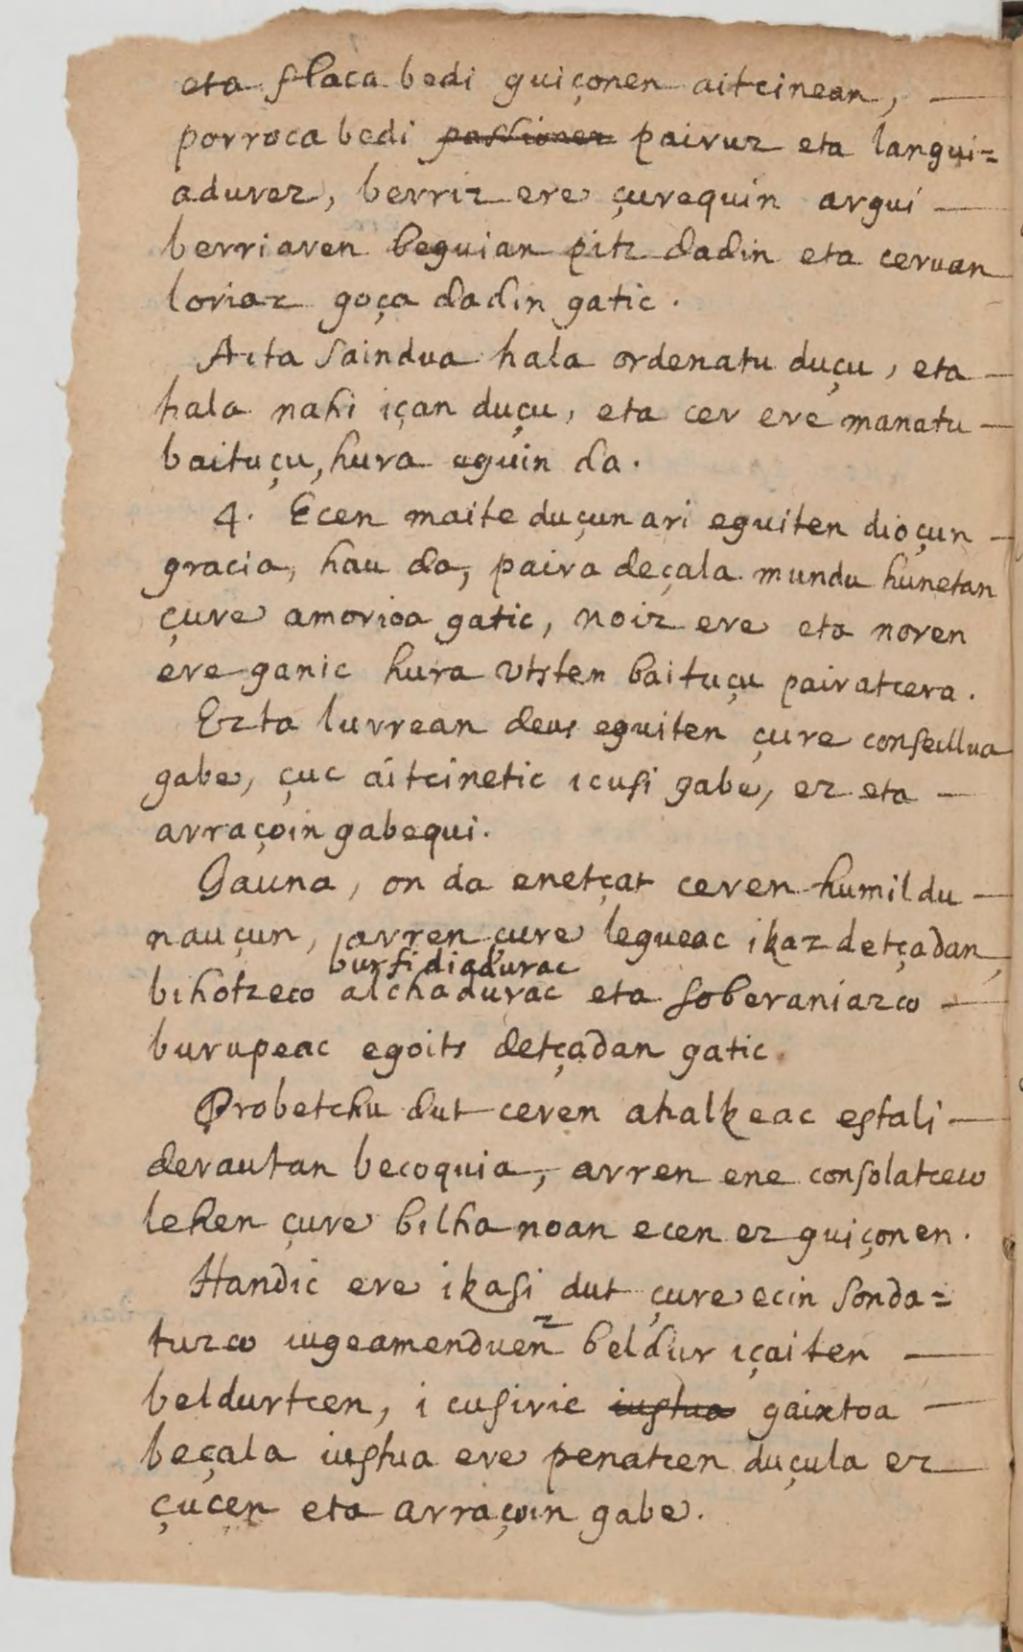 eta flaca bedi guiçonen aitcinean, —
porroca bedi ~~passionez~~ pairuz eta langui=
adurez, berriz ere çurequin argui —
berriaren beguian pitz dadin eta ceruan
loriaz goça dadin gatic.
Aita saindua hala ordenatu duçu, eta —
hala nahi içan duçu, eta cer ere manatu —
baituçu, hura eguin da.
4. Ecen maite duçunari eguiten dioçun —
gracia, hau da, paira deçala mundu hunetan
çure amorioa gatic, noiz ere eta noren
ere ganic hura utsten baituçu pairatcera.
Ezta lurrean deus eguiten çure conseillua
gabe, çuc aitcinetic icusi gabe, ez eta —
arraçoin gabequi.
Jauna, on da enetçat ceren humildu —
nauçun, arren çure legueac ikaz detçadan,
bursidiadurac
bihotzeco alchadurac eta soberaniazco —
burupeac egoits detçadan gatic.
Probetchu dut ceren ahalkeac estali —
derautan becoquia, arren ene consolatceco
lehen çure bilha noan ecen ez guiçonen.
Handic ere ikasi dut çure ecin sonda=
tuzco iugeamenduen z beldur içaiten —
beldurtcen, icusiric ~~iustua~~ gaixtoa —
beçala iustua ere penatcen duçula ez
çucen eta arraçoin gabe.